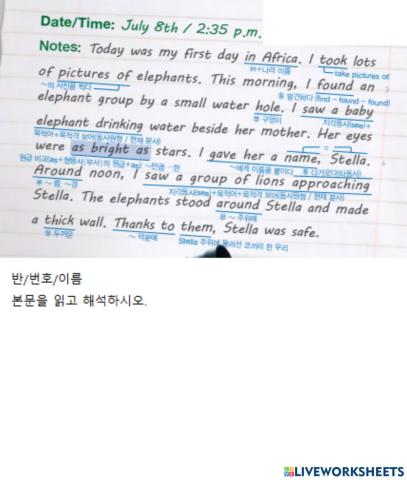 Date/Time: July 8th / 2:35 p.m.
Notes: Today was my first day in Africa. I took lots
in+나라 이름
take pictures of
of pictures of elephants. This morning, I found an
~의 사진을 찍다
발견하다 (find - found - found)
elephant group by a small water hole. I saw a baby
구멍이
지각동사(see)+
elephant drinking water beside her mother. Her eyes
목적어+목적격 보어(동사원형 / 현재 분사)
were as bright as stars. I gave her a name, Stella.
원급 비교(as+형용사[부사]의 원급+as): ~만큼 …한
~에게 이름을 붙이다
다가오다(타동사)
Around noon, I saw a group of lions approaching
지각동사(see)+목적어+목적격 보어(동사원형 / 현재 분사)
Stella. The elephants stood around Stella and made
~ 주위에
a thick wall. Thanks to them, Stella was safe.
두꺼운
~ 덕분에
Stella 주위에 둘러선 코끼리 한 무리
반/번호/이름
본문을 읽고 해석하시오.
LIVEWORKSHEETS